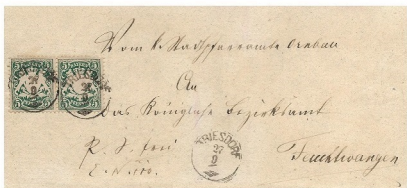 Vom k. Stadtpfarramte Ornbau
An
das Königliche Bezirksamt
R. S. frei
TRIESDORF
27
9
Feuchtwangen